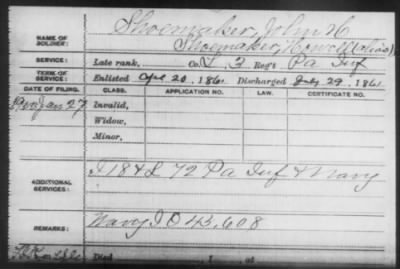 NAME OF SOLDIER: Shoemaker, John H
Shoemaker, Howell (alias)
SERVICE: Late rank, Co. I, 3 Reg't Pa Inf
TERM OF SERVICE: Enlisted Apl 20, 1861 Discharged July 29, 1861
DATE OF FILING. CLASS. APPLICATION NO. LAW. CERTIFICATE NO.
Jan 27 Invalid,
Widow,
Minor,
ADDITIONAL SERVICES: I 18 & L 72 Pa Inf & Navy
REMARKS: Navy I O 43,608
Died , 1 , at